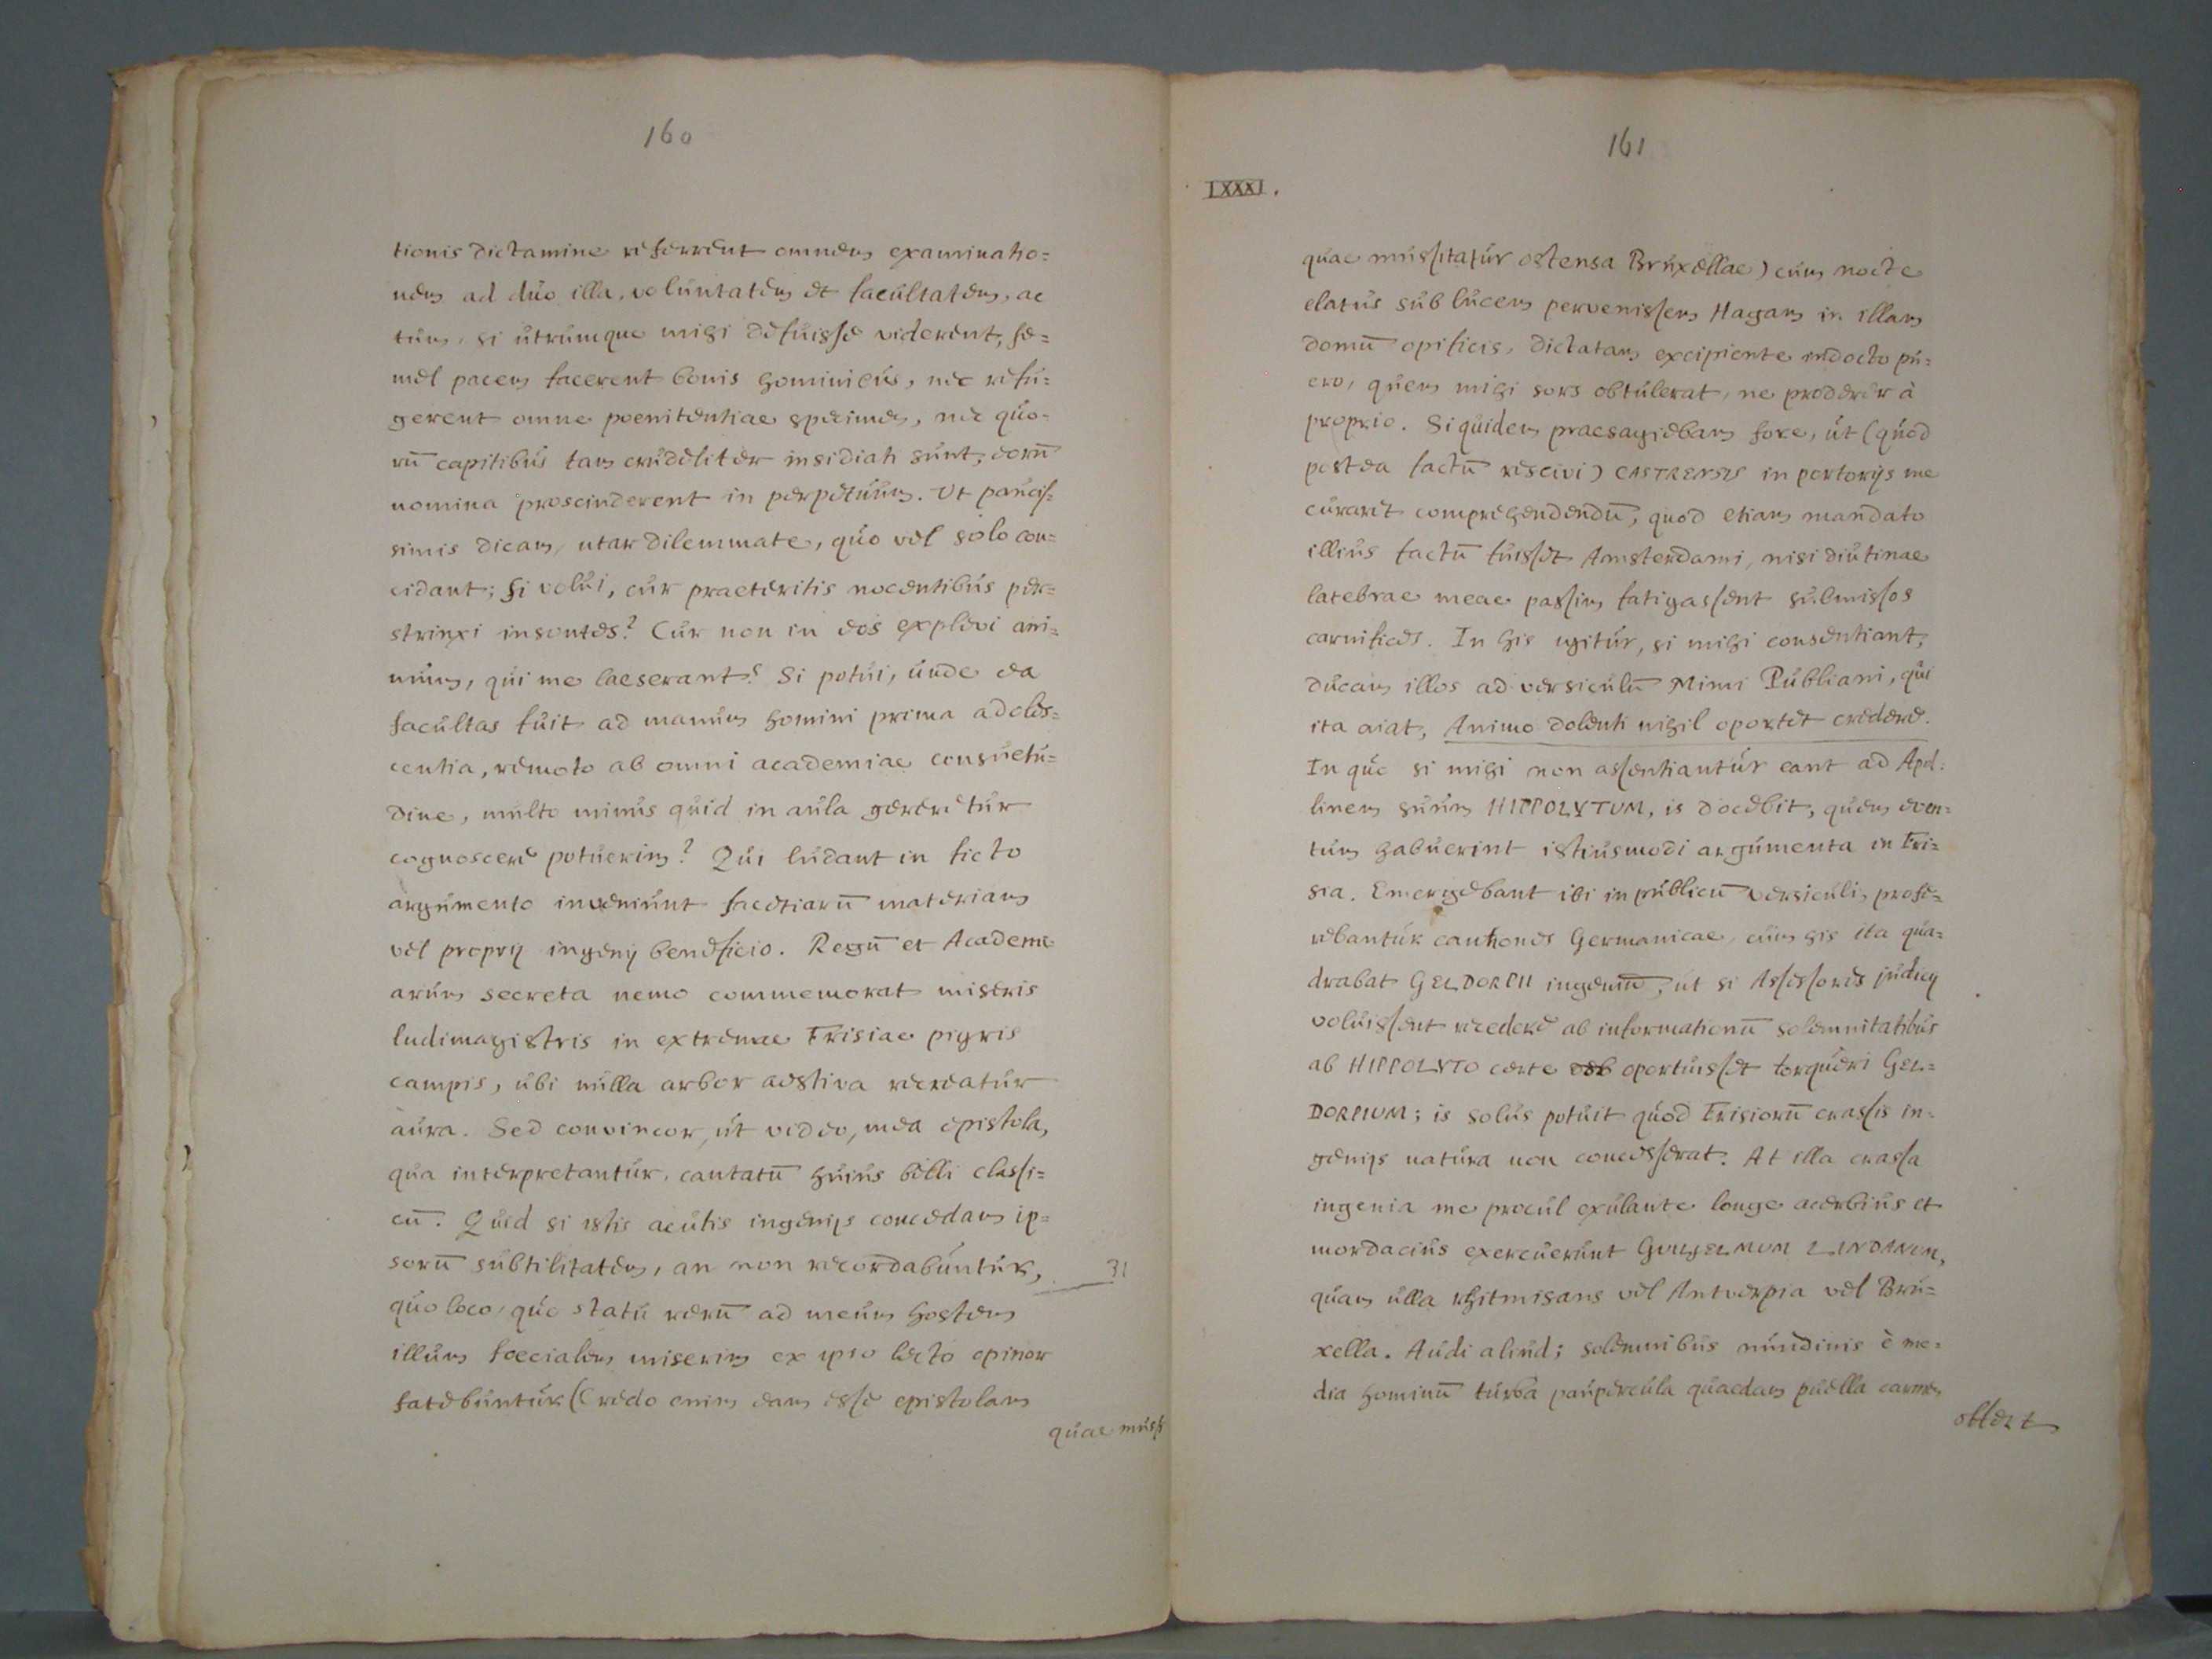 160
tionis dictamine referrent omnem examinatio=
nem ad duo illa, voluntatem et facultatem, ac
tum, si utrumque mihi defuisse viderent, se=
mel pacem facerent bonis hominibus, nec refu=
gerent omne poenitentiae specimen, nec quo=
rū capitibus tam crudeliter insidiati sunt, eorū
nomina proscinderent in perpetuum. Vt paucis=
simis dicam, utar dilemmate, quo vel solo con=
cidant; si volui, cur praeteritis nocentibus per=
strinxi insontes? Cur non in eos explevi ani=
mum, qui me laeserant? Si potui, unde ea
facultas fuit ad manum homini prima adoles=
centia, remoto ab omni academiae consuetu=
dine, multo minus quid in aula gereretur
cognoscere potuerim? Qui ludant in ficto
argumento inveniunt facetiarū materiam
vel proprij ingenij beneficio. Regū et Academi=
arum secreta nemo commemorat miseris
ludimagistris in extremae Frisiae pigris
campis, ubi nulla arbor aestiva recreatur
aura. Sed convincor, ut video, mea epistola,
qua interpretantur, cantatū huius belli classi=
cū. Quid si istis acutis ingenijs concedam ip=
sorū subtilitatem, an non recordabuntur, 31
quo loco, quo statu rerū ad meum hostem
illum foecialem miserim ex ipso lecto opinor
fatebuntur (Credo enim eam esse epistolam
quae muss
161
LXXXI.
quae mussitatur ostensa Bruxellae) cum nocte
elatus sub lucem pervenissem Hagam in illam
domū opificis, dictatam excipiente indocto pu=
ero, quem mihi sors obtulerat, ne proderer à
proprio. Siquidem praesagiebam fore, ut (quod
postea factū rescivi) CASTRENSIS in portorijs me
curarit comprehendendū, quod etiam mandato
illius factū fuisset Amsterdami, nisi diutinae
latebrae meae passim fatigassent submissos
carnifices. In his igitur, si mihi consentiant,
ducam illos ad versiculū Mimi Publiani, qui
ita aiat, Animo dolenti nihil oportet credere.
In quo si mihi non assentiantur eant ad Apol=
linem suum HIPPOLYTUM, is docebit, quem even=
tum habuerint istiusmodi argumenta in Fri=
sia. Emergebant ibi in publicū versiculi, profe=
rebantur cantiones Germanicae, cum his ita qua=
drabat GELDORPII ingeniū, ut si Assessores judicij
voluissent recedere ab informationū solemnitatibus
ab HIPPOLYTO certe oportuisset torqueri GEL=
DORPIUM; is solus potuit quod Frisiorū crassis in=
genijs natura non concesserat. At illa crassa
ingenia me procul exulante longe acerbius et
mordacius exercuerunt GUILJELMUM LINDANUM,
quam ulla rhitmisans vel Antverpia vel Bru=
xella. Audi aliud; solemnibus nundinis è me=
dia hominū turba paupercula quaedam puella carmen
offert